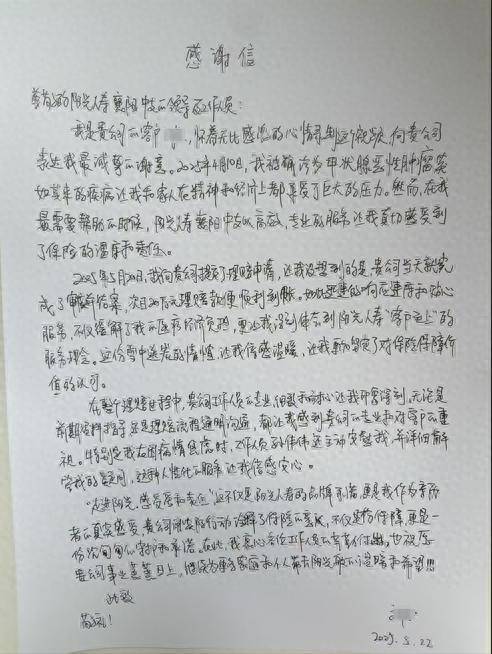 感谢信
尊敬的阳光人寿襄阳中支的领导及工作人员：
我是贵公司的客户 ，怀着无比感激的心情写下这个 ，向贵公司
表达我最诚挚的谢意。2025年4月10日，我被确诊为甲状腺恶性肿瘤，突
如其来的疾病让我和家人在精神和经济上都承受了巨大的压力。然而，在我
最需要帮助的时候，阳光人寿襄阳中支以高效、专业的服务让我真切感受到
了保险的温度和责任。
2025年5月20日，我向贵公司提交了理赔申请，让我没想到的是贵公司当天就完
成了审核结案，次日20万元理赔款便顺利到账。如此迅速的响应速度和贴心
服务，不仅缓解了我的医疗经济负担，更让我深刻体会到阳光人寿“客户至上”的
服务理念。这份雪中送炭的情谊，让我倍感温暖，让我更加坚定了对保险保障价
值的认可。
在整个理赔过程中，贵公司工作人员的专业、细致和耐心让我印象深刻，无论是
前期资料指导还是理赔流程透明沟通，都让我感到贵公司的专业和对客户的重
视。特别是我在因病情焦虑时，工作人员 还主动安慰我，并详细解
答我的疑问，这种人性化的服务让我倍感安心。
“走进阳光，感受爱和责任”这不仅是阳光人寿的品牌承诺，更是我作为亲历
者的真实感受。贵公司用实际行动诠释了保险的意义，不仅是份保障，更是一
份 的守护和承诺。在此，我衷心感谢工作人员的辛苦付出，也祝愿
贵公司事业蒸蒸日上，继续为更多家庭和个人带去阳光般的温暖和希望!!!
此致
敬礼！
2025.5.22